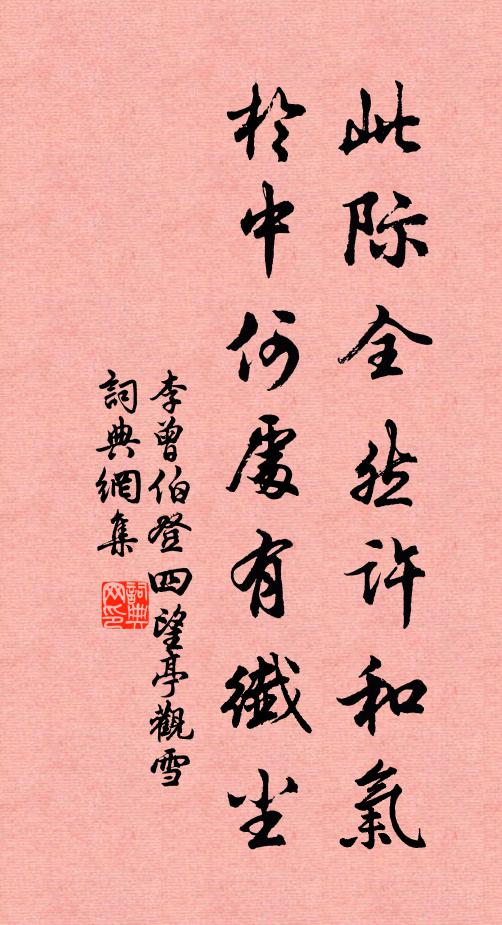 此际全然许和氣
於中何處有纖尘
李曾伯登四望亭觀雪
詞典網集
詞典
网印